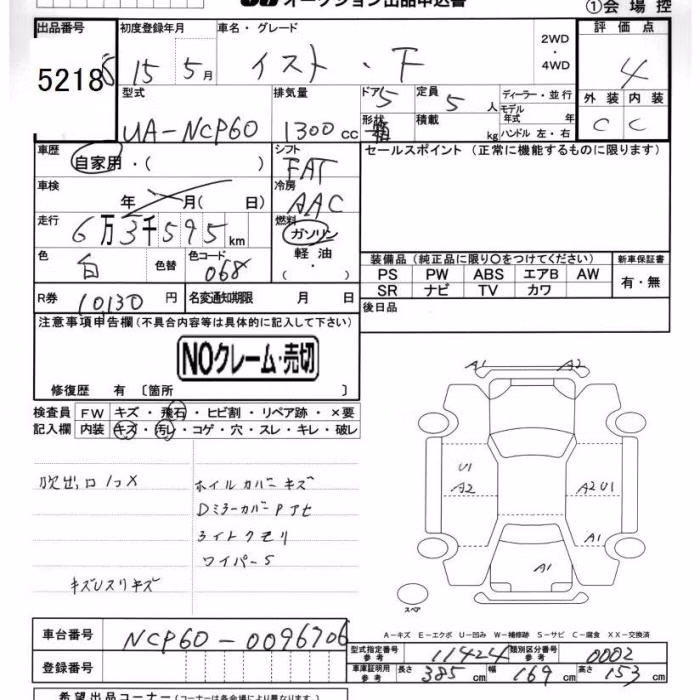 オークション出品申込書
①会場控
出品番号 5218
初度登録年月 15 5月
車名・グレード イスト・F
2WD・4WD
評価点 4
型式 UA-NCP60
排気量 1300cc
ドア 5 形状
定員 5人 積載 kg
ディーラー・並行
モデル年式 年式 年
ハンドル 左・右
外装 C 内装 C
車歴 自家用・( )
シフト FAT
セールスポイント(正常に機能するものに限ります)
車検 年 月( 日)
冷房 AAC
走行 6万3千595km
燃料 ガソリン・軽油・( )
色 白 色替 色コード 068
装備品(純正品に限り○をつけてください) 新車保証書
PS PW ABS エアB AW 有・無
SR ナビ TV カワ
R券 10,130円 名変通知期限 月 日
後日品
注意事項申告欄(不具合内容等は具体的に記入して下さい)
NOクレーム・売切
修復歴 有〔箇所 〕
A1 A2
検査員 FW キズ・飛石・ヒビ割・リペア跡・×要
記入欄 内装 キズ・汚レ・コゲ・穴・スレ・キレ・破レ
吹出口1コX
ホイルカバーキズ
Dミラーカバー Pアセ
ライトクモリ
ワイパーS
キズUスリキズ
U1 A2 A2 U1
A1
A1
スペア
A−キズ E−エクボ U−凹み W−補修跡 S−サビ C−腐食 XX−交換済
車台番号 NCP60-0096706
型式指定番号 参考 11424 類別区分番号 参考 0002
登録番号
車庫証明用 参考 長さ 385cm 幅 169cm 高さ 153cm
希望出品コーナー(コーナーは各会場により異なります)